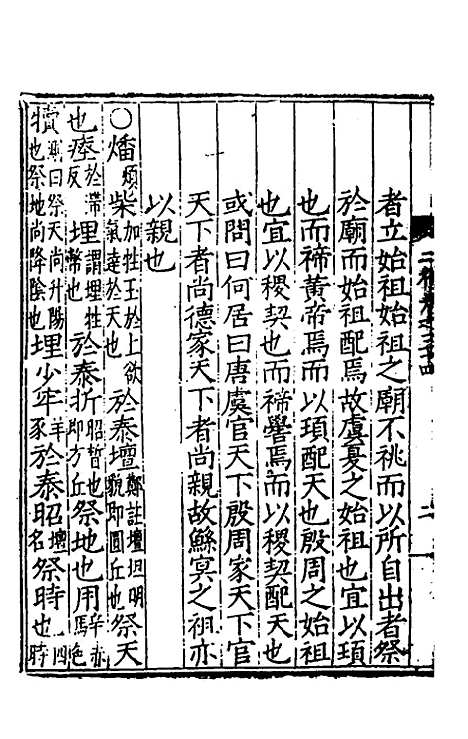 者立始祖始祖之廟不祧而以所自出者祭
於廟而始祖配焉故虞夏之始祖也宜以頊
也而禘黃帝焉而以頊配天也殷周之始祖
也宜以稷契也而禘嚳焉而以稷契配天也
或問曰何居曰唐虞官天下殷周家天下官
天下者尚德家天下者尚親故鯀冥之祖亦
以親也
○燔煩柴加牲玉於上欲氣達於天也於泰壇鄭註壇坦明貌即圜丘也祭天
也瘞於滯反埋謂埋牲幣也於泰折昭晳也即方丘祭地也用辛赤馬色
犢疏曰祭天尚升陽也祭地尚降陰也埋少牢羊豕於泰昭壇名祭時也四時